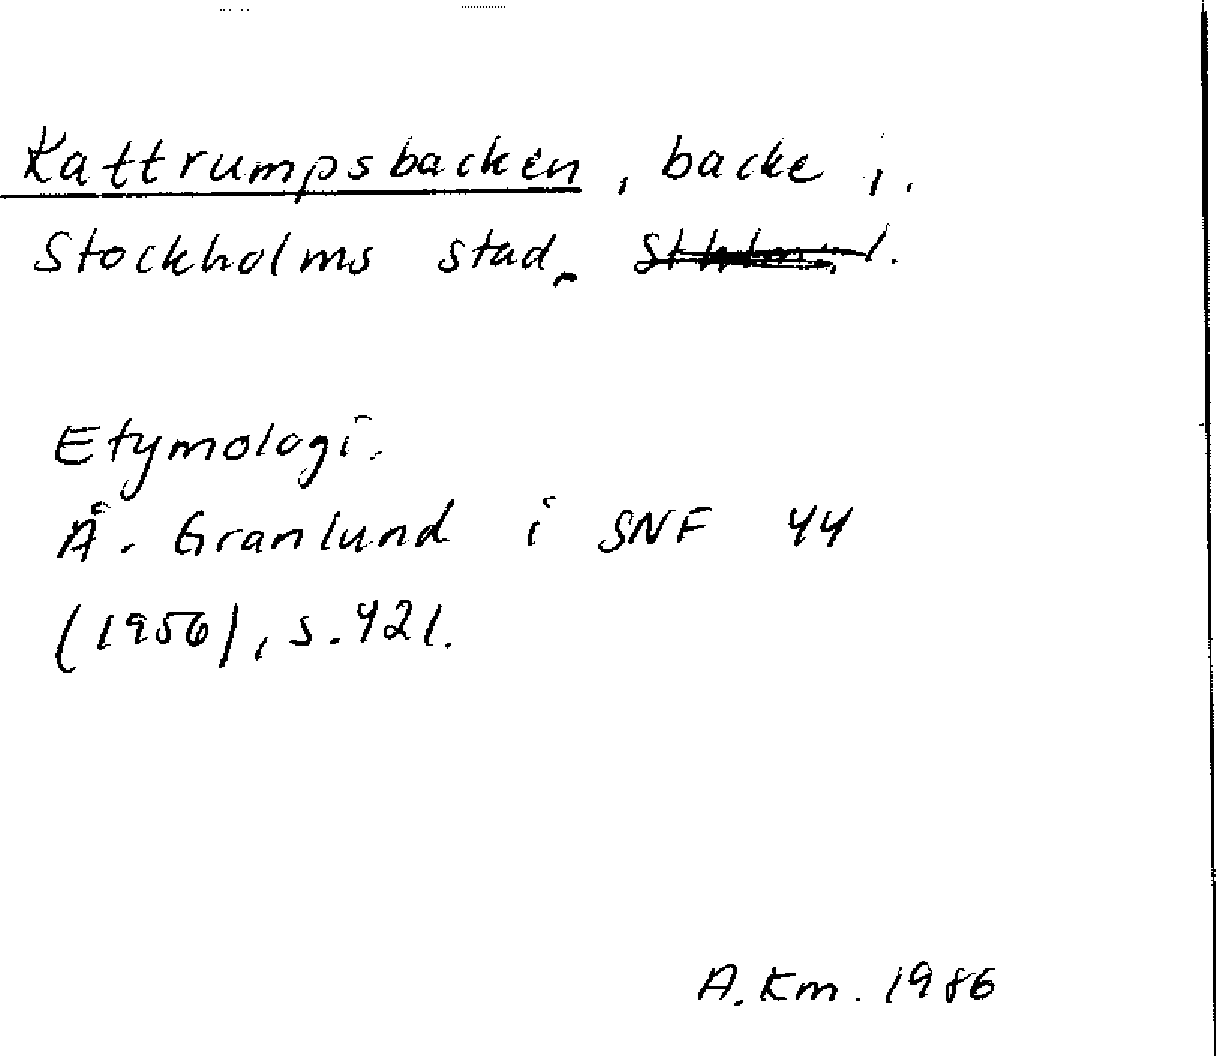 Kattrumpsbacken, backe i.
Stockholms stad.
Etymologi.
Å. Granlund i SNF 44
(1956), s. 42 f.
A. Km. 1986